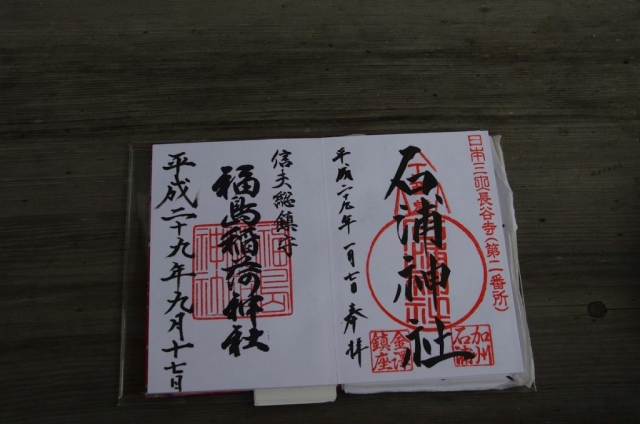 日本三水長谷寺(第二番所)
石浦神社
加州
石浦
金澤
鎮座
平成二九年一月七日 奉拝
信夫総鎮守
福島稲荷神社
平成二十九年九月十七日